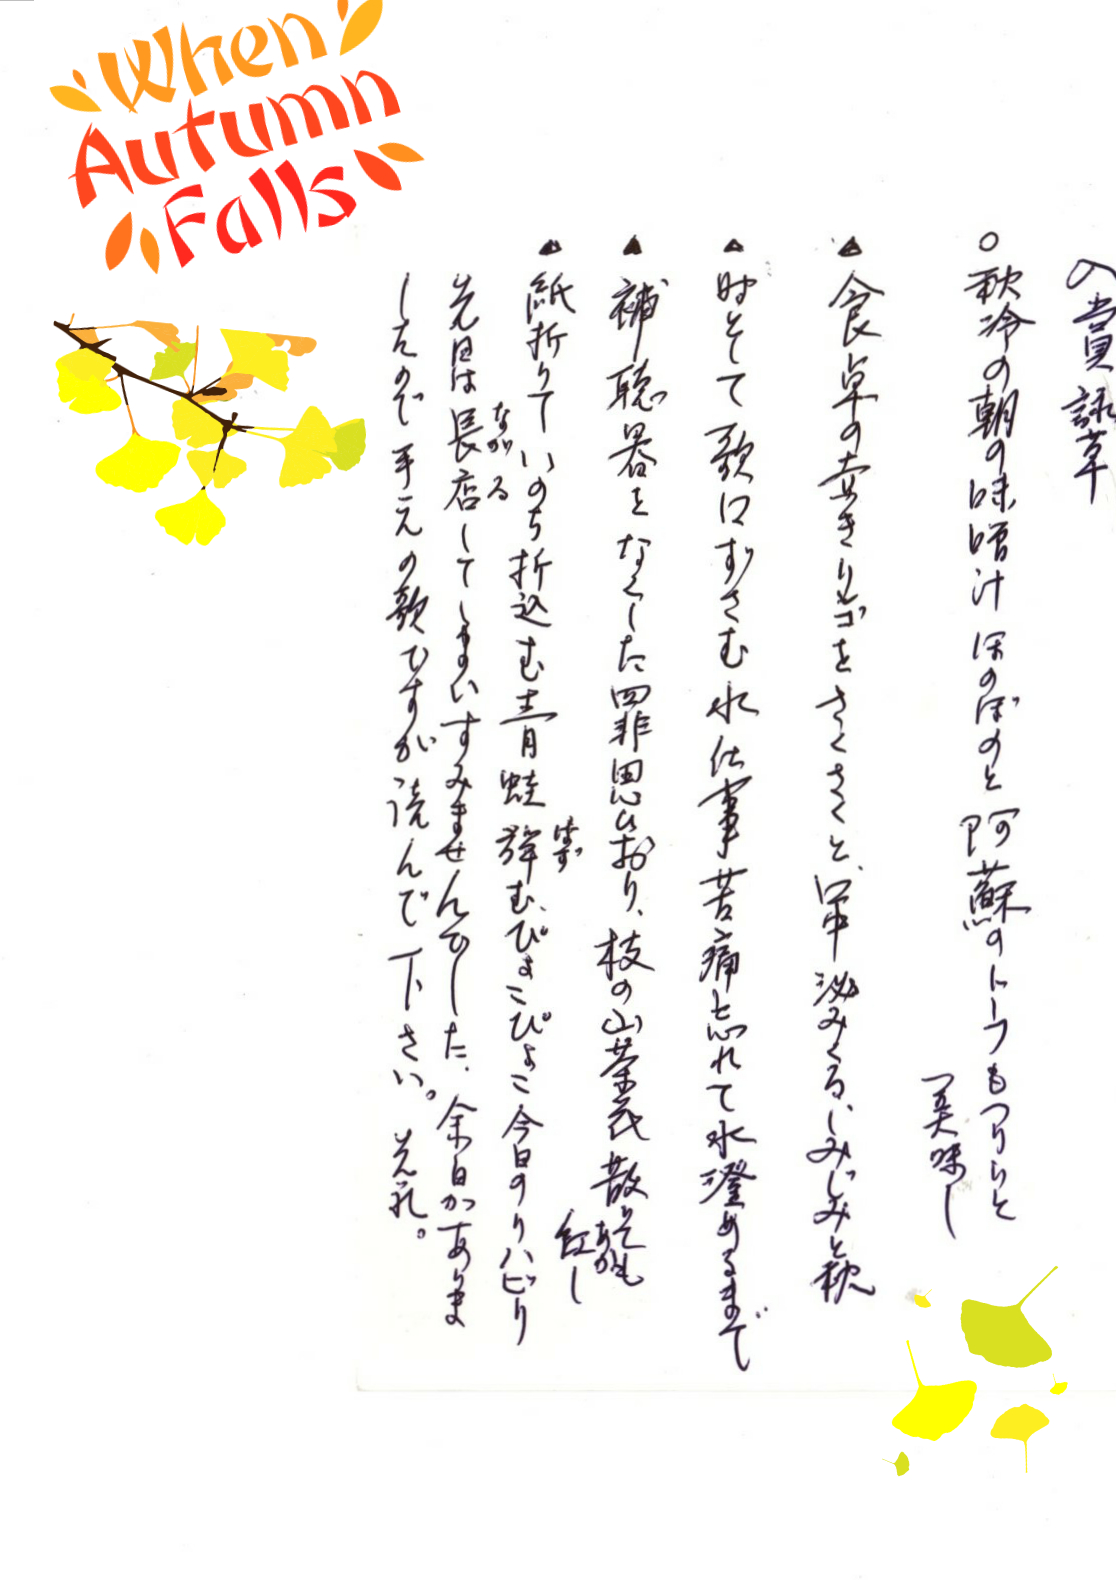 When
Autumn
Falls
入賞 詠草
○秋冷の朝の味噌汁ほのぼのと阿蘇のトーフもつりりと
美味し
▲食卓の青きりんごをさくさくと、軍 泌みくるじみじみと秋
▲時として歌口ずさむ水仕事苦痛忘れて水澄めるまで
▲補聴器をなくした罪思ひおり、枝の山茶花散りても
紅し
あかし
▲紙折りていのち折込む青蛙 弾む、ぴょこぴょこ今日のリハビリ
はず
先日は長居してしまいすみませんでした。余白がありま
ながゐ
したので手元の歌ですが読んで下さい。失礼。